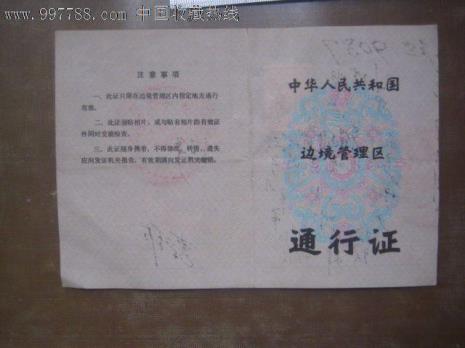 www.997788.com 中国收藏热线
注意事项
一、此证只限在边境管理区内指定地点通行
有效。
二、此证须贴相片，或与贴有相片的有效证
件同时交验检查。
三、此证随身携带，不得涂改、转借、遗失
应向发证机关报告，有效期满向发证机关缴销。
中华人民共和国
边境管理区
通行证